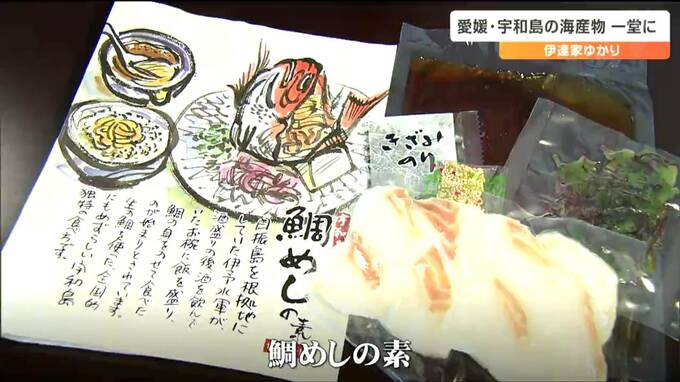 愛媛・宇和島の海産物 一堂に
伊達家ゆかり
きざみ
のり
宇和島
鯛めしの素
日振島を根拠地に
していた伊予水軍が、
酒盛りの後酒を飲んで
いたお椀に飯を盛り、
鯛の身をのせて食べた
のが始まりとされています。
生の鯛を使った全国的
にもめずらしい宇和島
独特の食べ方です。
鯛めしの素